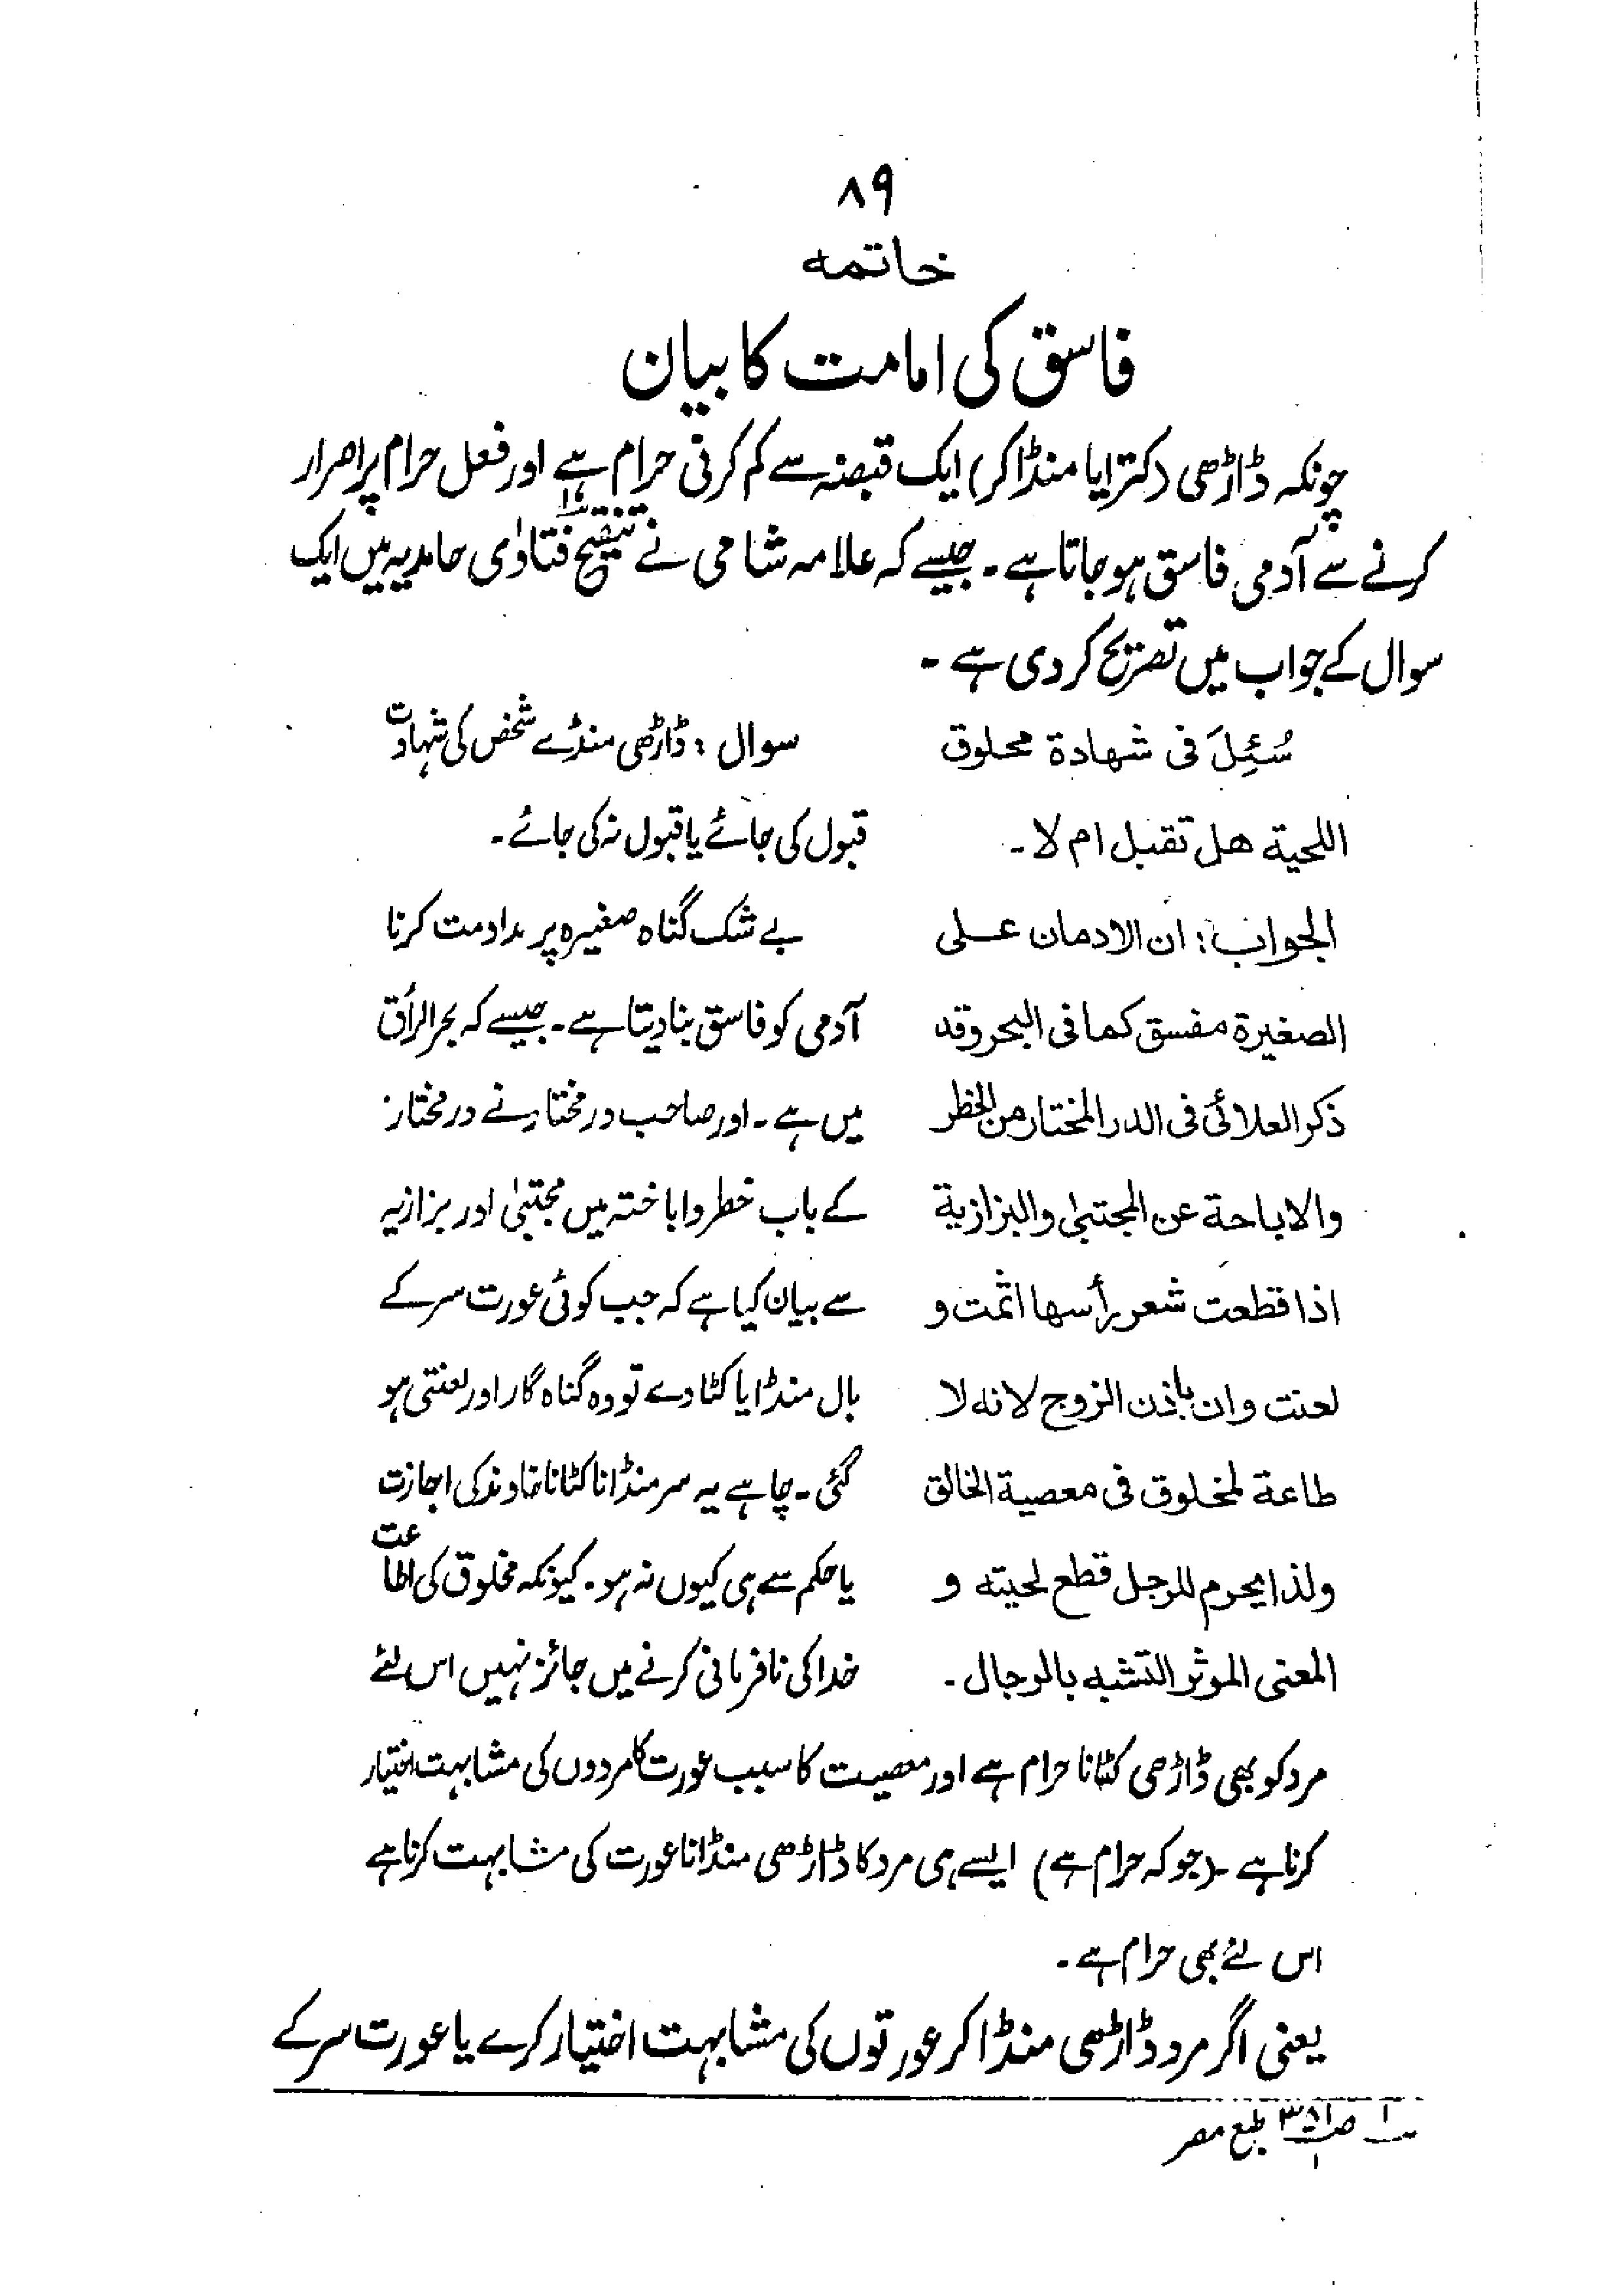 ۸۹
خاتمه
فاسق کی امامت کا بیان
چونکہ ڈاڑھی (کترا یا منڈا کر) ایک قبضہ سے کم کرنی حرام ہے اور فعل حرام پر اصرار
کرنے سے آدمی فاسق ہو جاتا ہے۔ جیسے کہ علامہ شامی نے تنقیح فتاوٰی حامدیہ میں ایک
سوال کے جواب میں تصریح کر دی ہے۔
سُئِلَ فی شهادة محلوق
اللحیة هل تقبل ام لا۔
الجواب: ان الادمان علی
الصغیرة مفسق کما فی البحر وقد
ذکر العلائی فی الدر المختار من الخظر
والاباحة عن المجتبیٰ والبزازیة
اذا قطعت شعر رأسها اثمت و
لعنت وان باذن الزوج لانه لا
طاعة لمخلوق فی معصیة الخالق
ولذا یحرم للرجل قطع لحیته و
المعنی الموثر التشبه بالرجال۔
سوال: ڈاڑھی منڈے شخص کی شہادت
قبول کی جائے یا قبول نہ کی جائے۔
بے شک گناہ صغیرہ پر مداومت کرنا
آدمی کو فاسق بنا دیتا ہے۔ جیسے کہ بحر الرائق
میں ہے۔ اور صاحب در مختار نے در مختار
کے باب خطر و اباختہ میں مجتبیٰ اور بزازیہ
سے بیان کیا ہے کہ جب کوئی عورت سر کے
بال منڈا یا کٹا دے تو وہ گناہ گار اور لعنتی ہو
گئی۔ چاہے یہ سر منڈانا کٹانا خاوند کی اجازت
یا حکم سے ہی کیوں نہ ہو۔ کیونکہ مخلوق کی اطاعت
خدا کی نافرمانی کرنے میں جائز نہیں اس لئے
مرد کو بھی ڈاڑھی کٹانا حرام ہے اور معصیت کا سبب عورت کا مردوں کی مشابہت اختیار
کرنا ہے۔ (جو کہ حرام ہے) ایسے ہی مرد کا ڈاڑھی منڈانا عورت کی مشابہت کرنا ہے
اس لئے بھی حرام ہے۔
یعنی اگر مرد ڈاڑھی منڈا کر عورتوں کی مشابہت اختیار کرے یا عورت سر کے
۱ ص ۳۵۱ ۱ طبع مصر